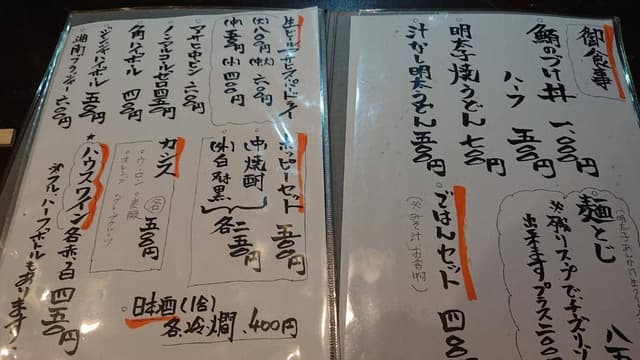 御食事
鯵のづけ丼 一、〇〇〇円
ハーフ 五〇〇円
明太子焼うどん 七〇〇円
汁なし明太うどん 五〇〇円
麺とじ
※残りスープでチーズリゾ
出来ますプラス二〇〇
ごはんセット 四〇
生ビール アサヒスーパードライ
(大)八〇〇円 (中大)六〇〇円
(中)五〇〇円 (小)四〇〇円
アサヒビン 五〇〇円
角ハイボール 四〇〇円
ジンジャーハイボール 五〇〇円
湘南フラッダー 六〇〇円
ホッピーセット 五〇〇円
(中)焼酎
(外)白・黒 各二五〇円
カシス
ウーロン
オレンジ
各 五〇〇円
★ハウスワイン 各赤・白 四五〇
※フル、ハーフボトルもあります!
日本酒(1合)
各冷・燗 400円